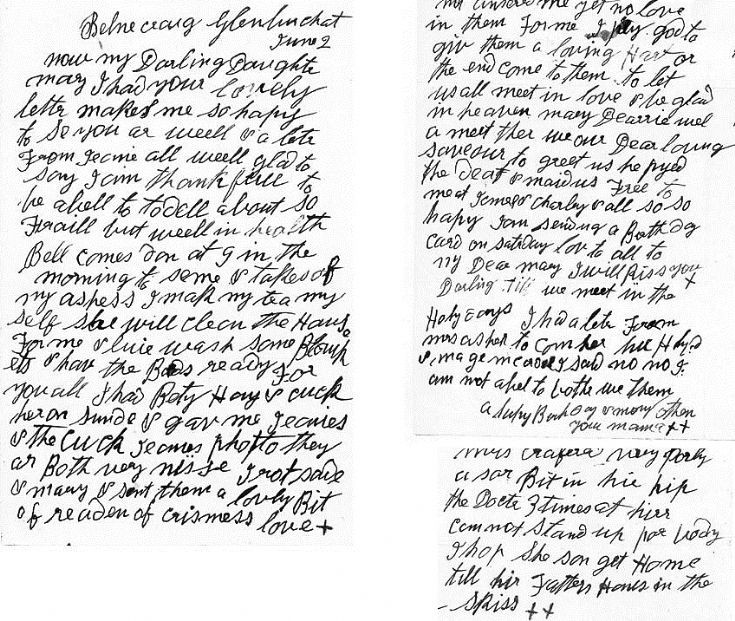 Belnecraig Glenlinchat
June 2
now my Darling Daughte
mary I had your lovely
lette makes me so hapy
to se you ar weell & a lete
From Jeanie all weell glad to
say I am thank full to
be abell to todell about so
Fraill but weell in health
Bell comes don at 9 in the
morning to seme & takes of
my aspess I mak my tea my
self she will clean the House
For me & luie wash some Blonk
ets & have the Beds ready For
you all I had Baty Hay & cuck
her on Sunde & gav me Jeanies
& the cuck Jeanies photo they
ar Both very nisse I not sade
& many & sent them a lovly Bit
of readen of crismess love +
me get no love
in them For me I pey god to
giv them a loving Hart or
the end come to them to let
us all meet in love & be glad
in heaven mary Dearrie wel
a meet ther we our Dear loving
saveour to greet us he pyed
the deat & maid us Free to
meat James & charley & all so so
hapy I am sending a Bothday
card on satday lov to all to
my Dear mary I will kiss you +
Darling till we meet in the
Holy Days I had a lete From
mrs asked to com her hir Holyd
& I said no no I
am not abel to bothe we them
a hapy Both Day & mony othen
your mama ++
mrs very porly
a sar Bit in hie hip
the Docte 3 times at hirr
can not stand up por body
I hop she son get Home
till hir Fatters Hous in the
skiss ++